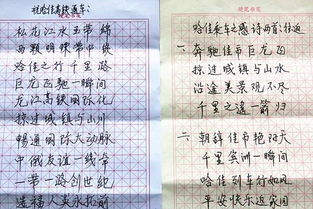 祝哈佳高铁通车:
松龙江水玉带锦
西颗明棵带中映
哈佳之行千里路
巨龙飞驰一瞬间
龙江高铁国际化
掠过城镇与山川
畅通国际大动脉
中俄友谊一线牵
一带一路创世纪
造福人类永拓前
哈佳乘车之感诗两首:往返
一 奔驰佳市巨龙飞
掠过城镇与山水
沿途美景观不尽
千里之遥一箭归
二 朝辞佳市艳阳天
千里宾洲一瞬间
哈佳列车行如风
平安快乐返家园